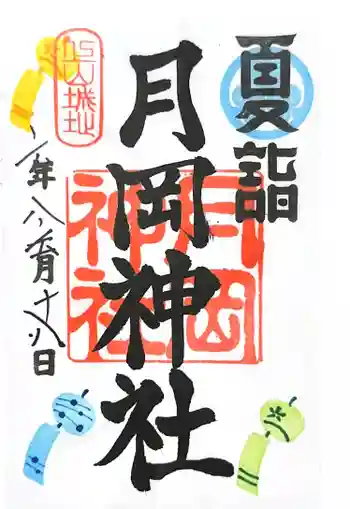 夏詣
月岡神社
月岡
神社
山城址
年八月十八日